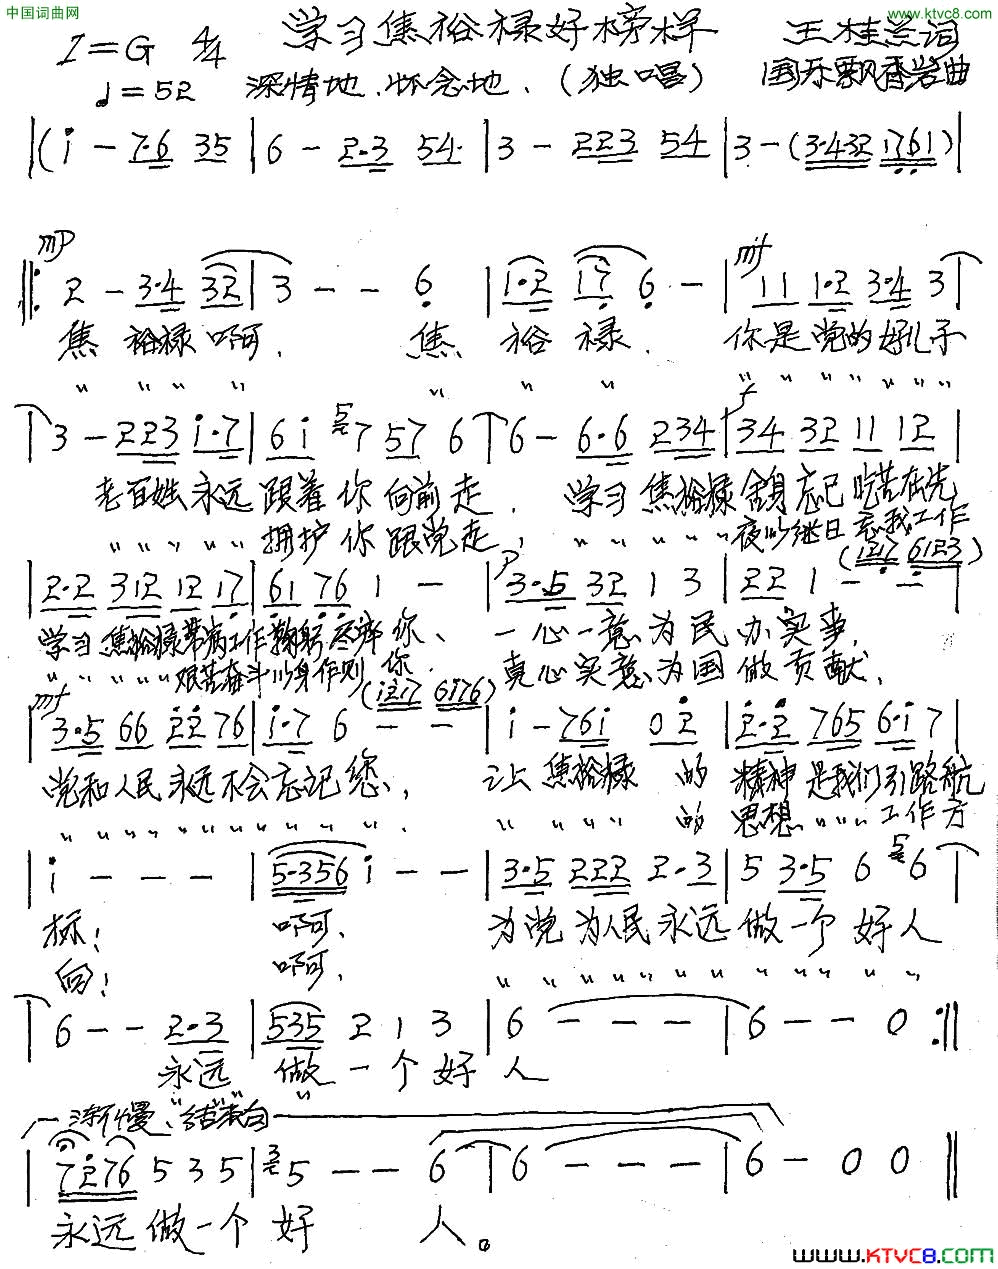 中国词曲网
www.ktvc8.com
1=G 4/4 学习焦裕禄好榜样 王桂兰词
♩=52 深情地、怀念地、(独唱) 国乐飘香岩曲
|(i - 7·6 35 | 6 - 2·3 54 | 3 - 223 54 | 3 - (3·432 1761)|
mp mf
‖: 2 - 3·4 32 | 3 - - 6 | 1·2 17 6 - | 11 1·2 3·4 3 |
焦 裕禄 啊, 焦 裕 禄, 你是党的好儿子
〃 〃 〃 〃 〃 〃 〃 〃 〃 〃 〃 〃 〃 〃
f
3 - 223 i·7 | 6i 57 57 6 | 6 - 6·6 234 | 34 32 11 12 |
老百姓永远跟着你向前走, 学习焦裕禄舍身忘己吃苦在先
〃 〃 〃 〃 〃 拥护你跟党走, 〃 〃 〃 〃 〃 夜以继日忘我工作
(1217 6123)
p
| 2·2 312 12 17 | 61 76 1 - | 3·5 32 1 3 | 22 1 - - |
学习焦裕禄带病工作鞠躬尽瘁你、 一心一意为民办实事,
〃 〃 〃 〃 〃 艰苦奋斗以身作则你, 真心实意为国做贡献,
mf (i217 6i76)
| 3·5 66 22 76 | i·7 6 - - | i - 76i 02 | 2·2 765 6·i 7 |
党和人民永远不会忘记您, 让焦裕禄的精神是我们引路航
〃 〃 〃 〃 〃 〃 〃 〃 〃 〃 〃. 〃 〃 〃 〃 的思想〃 〃 〃工作方
| i - - - | 5·356 i - - | 3·5 222 2·3 | 5 3·5 6 56 |
标! 啊, 为党为人民永远做一个好人
向! 啊, 〃 〃 〃 〃 〃 〃 〃 〃 〃 〃 〃
6 - - 2·3 | 535 2 1 3 | 6 - - - | 6 - - 0 :‖
永远做一个好人
渐慢、结束句
| 7276 5 3 5 | 35 - - 6 | 6 - - - | 6 - 0 0 ‖
永远做一个好 人。
www.KTVC8.com